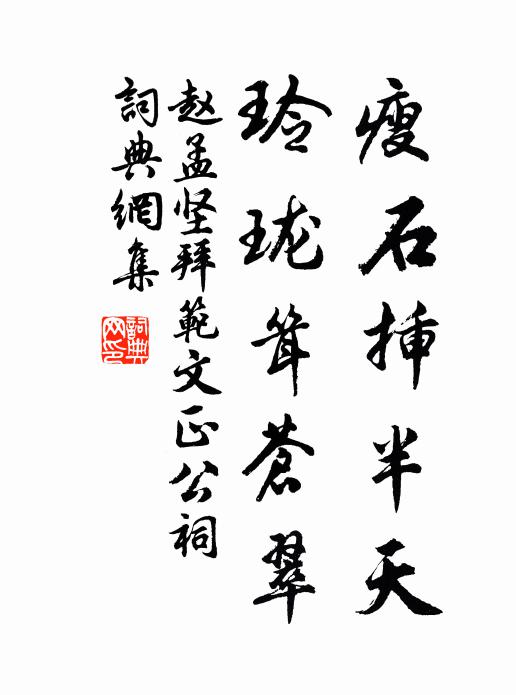 瘦石挿半天
玲珑耸蒼翠
赵孟坚拜範文正公祠
詞典網集
詞典網印